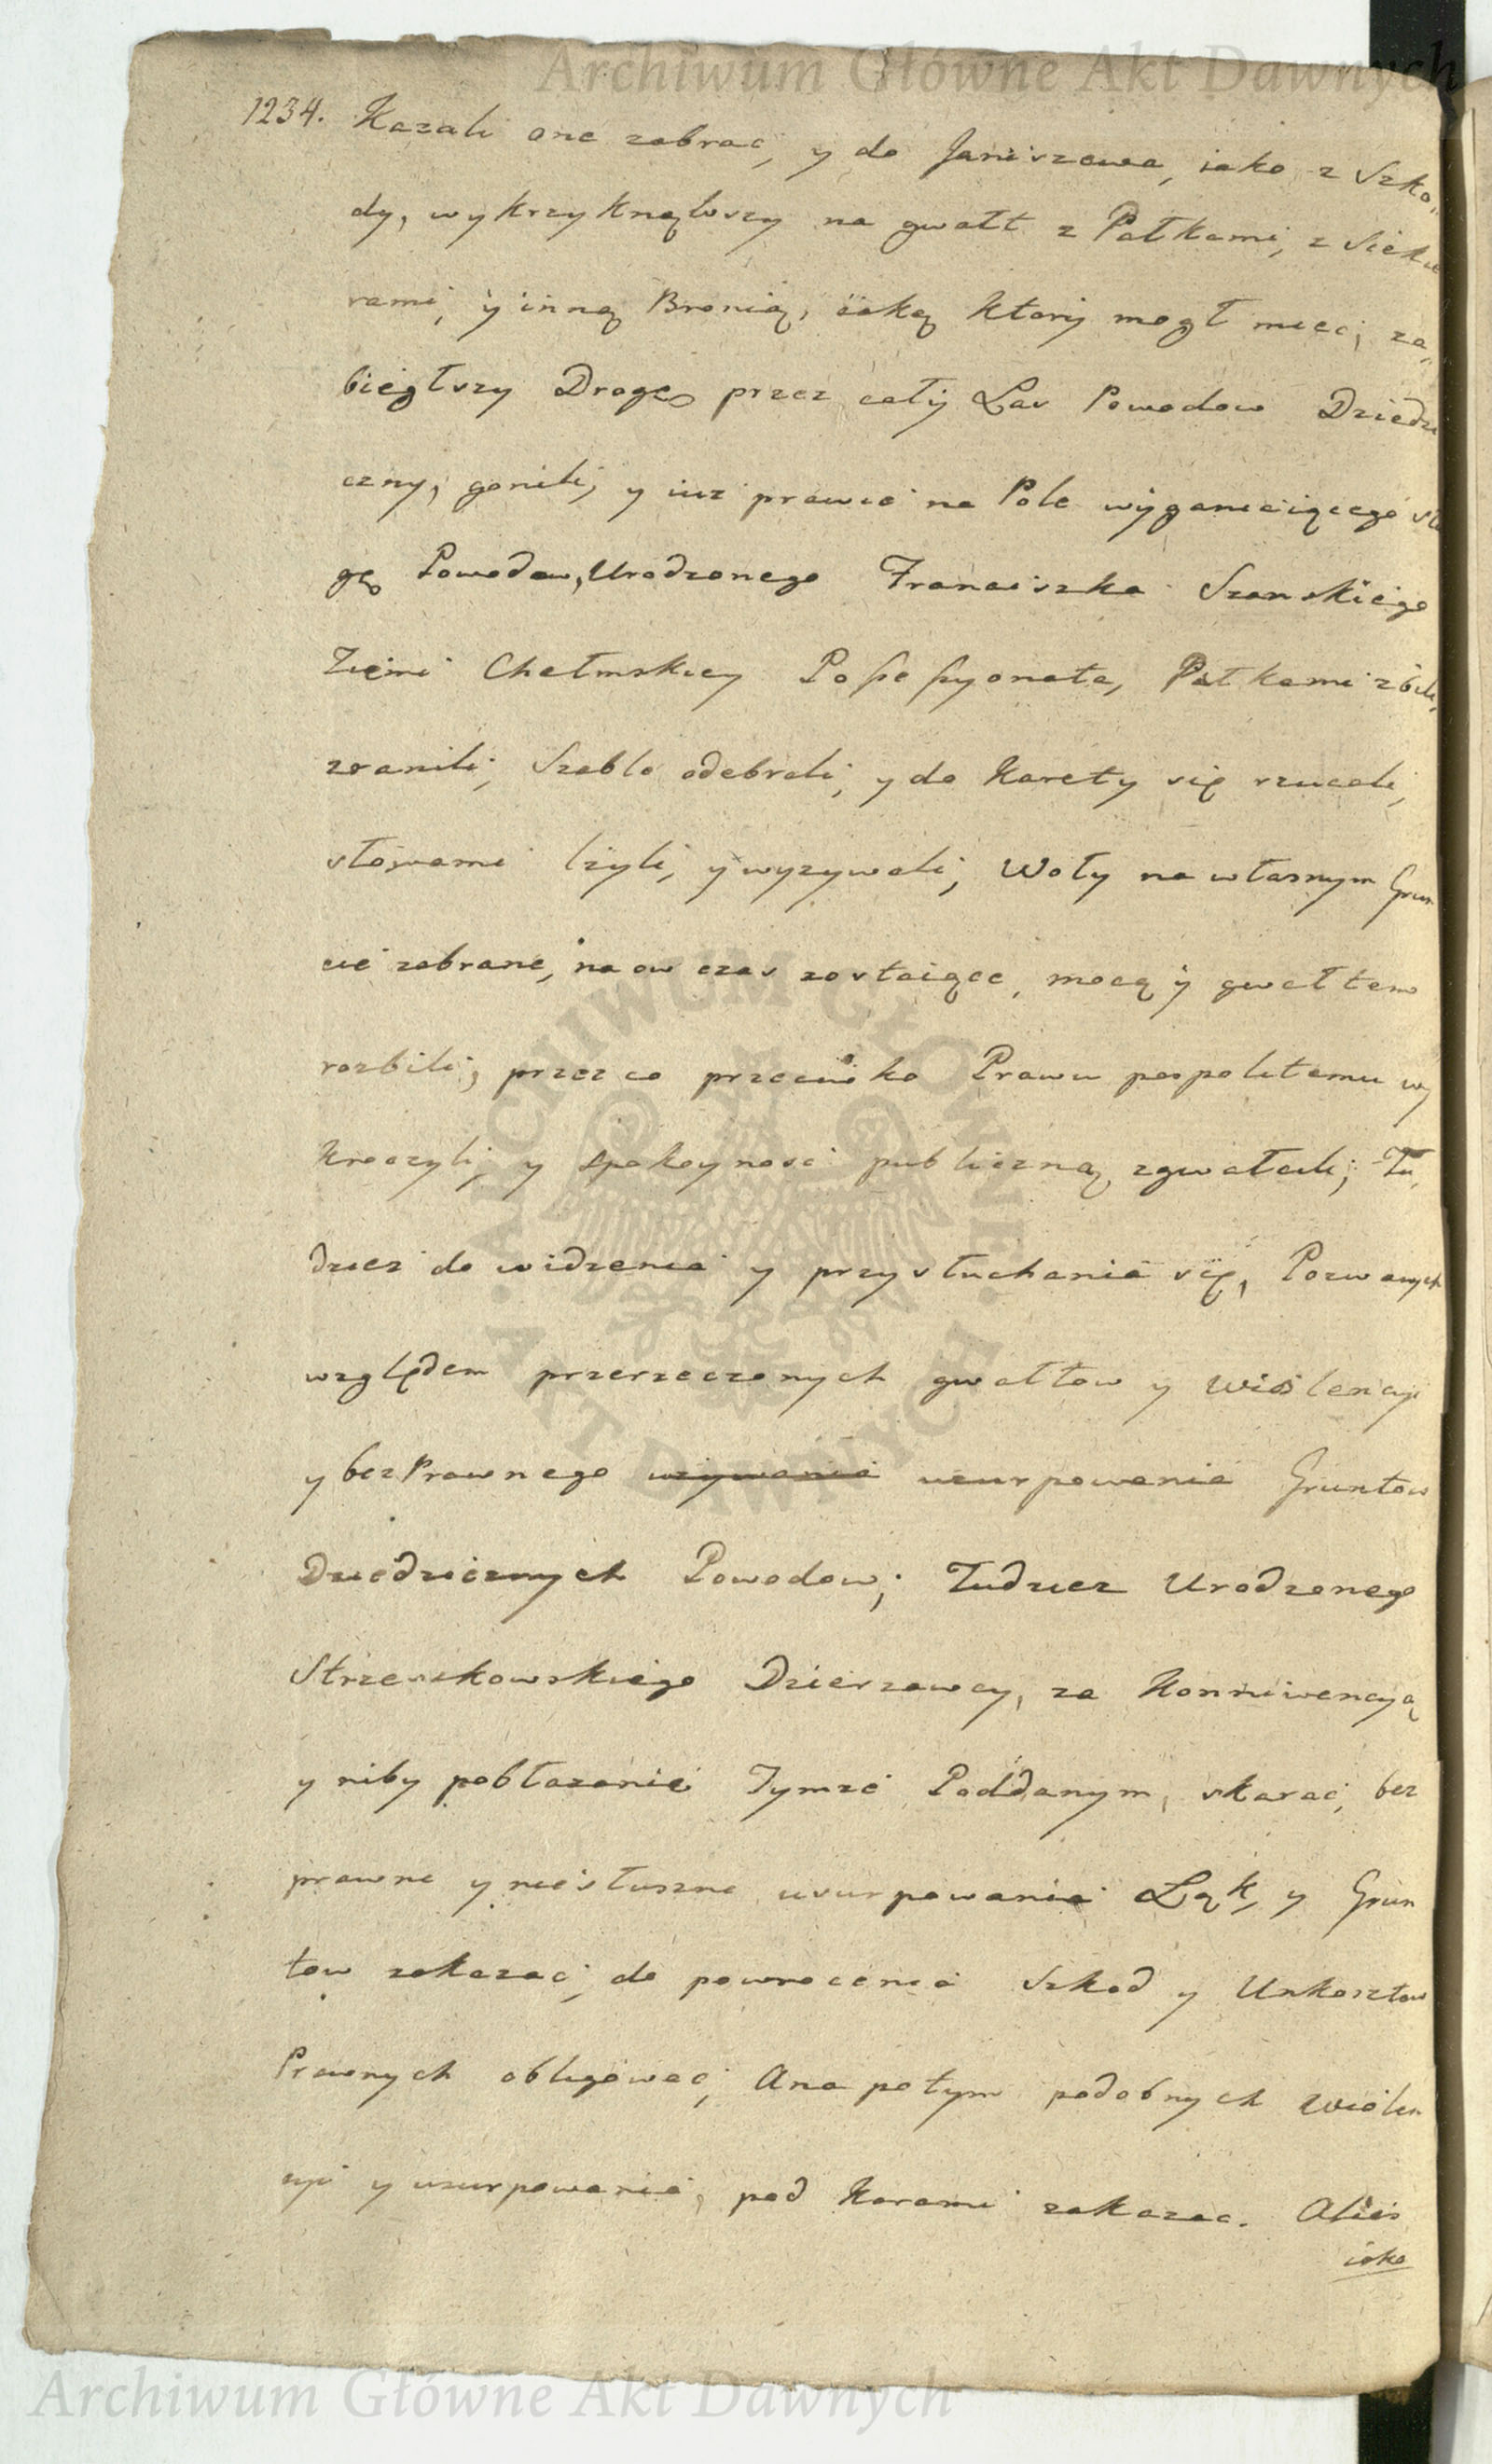 Archiwum Główne Akt Dawnych
1234. Kazali one zabrac, y do Janiszewa, iako z Szko„
dy, wykrzyknąwszy na gwałt z Pałkami, z Siekie
rami, y inną Bronią, iaką który mogł miec, za„
biegłszy Drogę przez cały Las Powodow Dziedzi
czny, gonili, y iuz prawie na Pole wyganiaiącego słu
gę Powodow, Urodzonego Franciszka Szanskiego
Ziemi Chełmskiey Possessyonata, Pałkami zbili,
zranili, Szable odebrali, y do Karety się rzucali,
słowami lzyli, y wyzywali, Woły na własnym Grun
cie zabrane, na ow czas zostaiące, mocą y gwałtem
rozbili, przez co przeciwko Prawu pospolitemu wy
kroczyli, y spokoynosc publiczną zgwałcili; Tu„
dziez do widzenia y przysłuchania się, Pozwanych
względem przerzeczonych gwałtow y Wiolencyi
y bezPrawnego uzywania usurpowania Gruntow
Dziedzicznych Powodow; Tudziez Urodzonego
Strzeszkowskiego Dzierzawcy, za Konniwencyą
y niby pobłazanie Tymze Poddanym, skarac, bez
prawne y niesłuszne usurpowania Łąk, y Grun
tow zakazac, do powrocenia Szkod y Unkosztow
Prawnych obligowac, A na potym podobnych Wiolen
cyi y usurpowania, pod Karami zakazac. Alias
iako
ARCHIWUM GŁÓWNE AKT DAWNYCH
Archiwum Główne Akt Dawnych